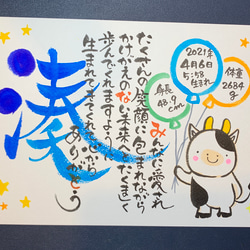 みんなに愛され
たくさんの笑顔に包まれながら
かけがえのない未来へと力強く
歩んでくれますように
生まれてきてくれて心から
ありがとう
湊
2021年
4月6日
5:58
生まれ
体重
2684
g
身長
48.9
cm